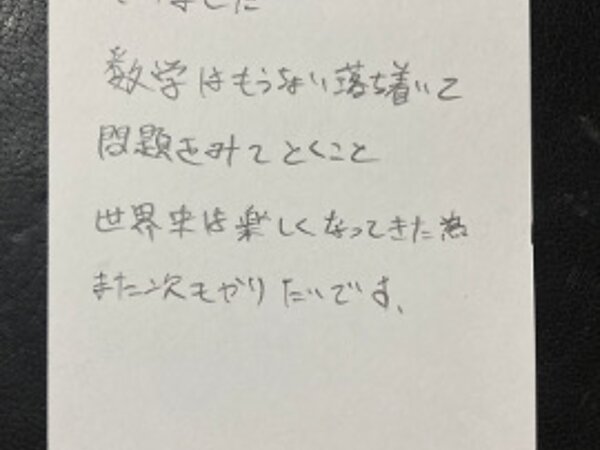 ました
数学はもうない落ち着いて
問題をみてとくこと
世界史は楽しくなってきた為
また次もやりたいです。